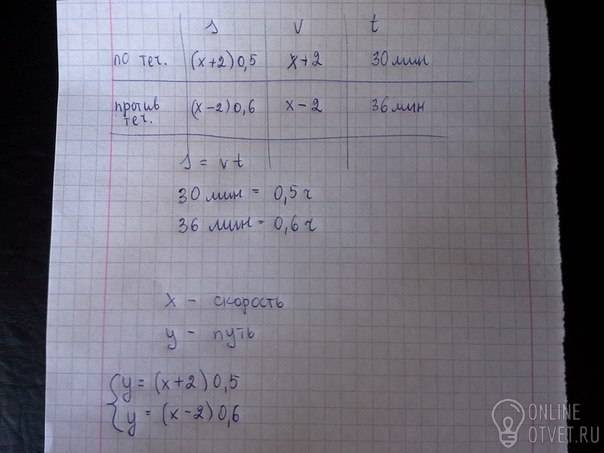 s v t
по теч. (x+2)0,5 x+2 30 мин
против теч. (x-2)0,6 x-2 36 мин
s = vt
30 мин = 0,5 ч
36 мин = 0,6 ч
x - скорость
y - путь
y = (x+2)0,5
y = (x-2)0,6
ONLINE
OTVET.RU